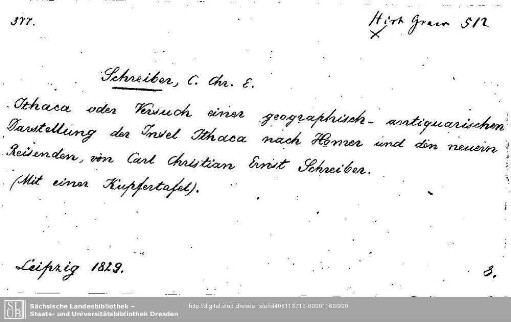 377.
Hist Graec 512
Schreiber, C. Chr. E.
Ithaca oder Versuch einer geographisch-antiquarischen
Darstellung der Insel Ithaca nach Homer und den neuern
Reisenden, von Carl Christian Ernst Schreiber.
(Mit einer Kupfertafel).
Leipzig 1829.
8.
Sächsische Landesbibliothek –
Staats- und Universitätsbibliothek Dresden